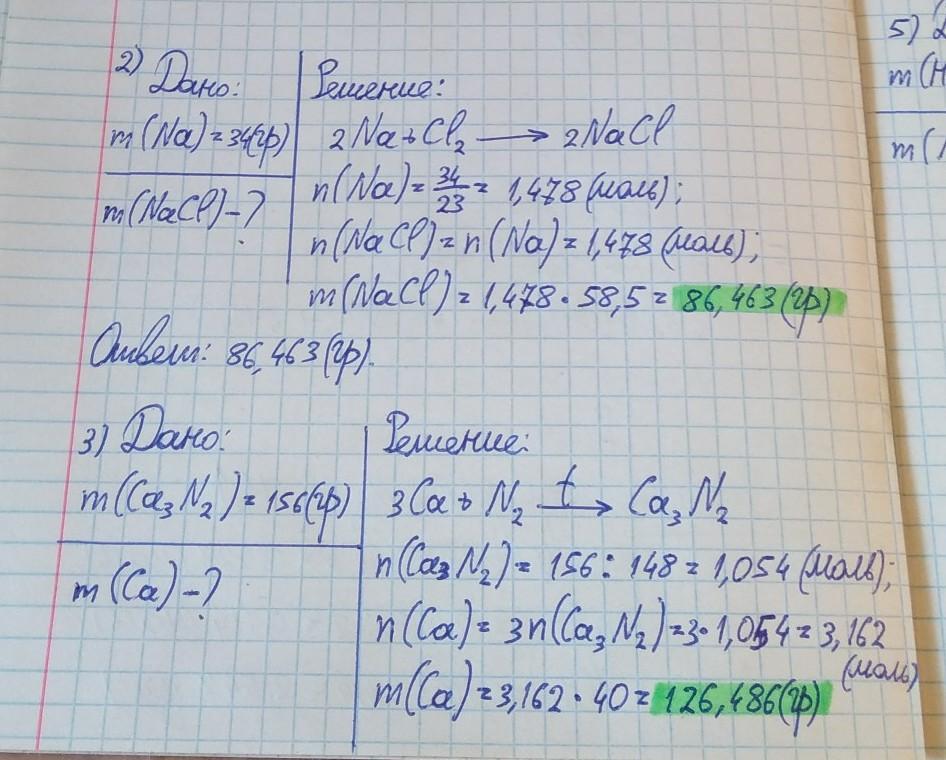 2) Дано:
m(Na)=34(гр)
m(NaCl)-?
Решение:
2Na+Cl₂ ⟶ 2NaCl
n(Na)= 34/23 = 1,478 (моль);
n(NaCl)=n(Na)=1,478 (моль);
m(NaCl)=1,478·58,5= 86,463(гр)
Ответ: 86,463(гр).
3) Дано:
m(Ca₃N₂)=156(гр)
m(Ca)-?
Решение:
3Ca+N₂ t⟶ Ca₃N₂
n(Ca₃N₂)= 156:148=1,054 (моль);
n(Ca)= 3n(Ca₃N₂)=3·1,054=3,162
(моль)
m(Ca)=3,162·40=126,486(гр)
5)
m(
m(